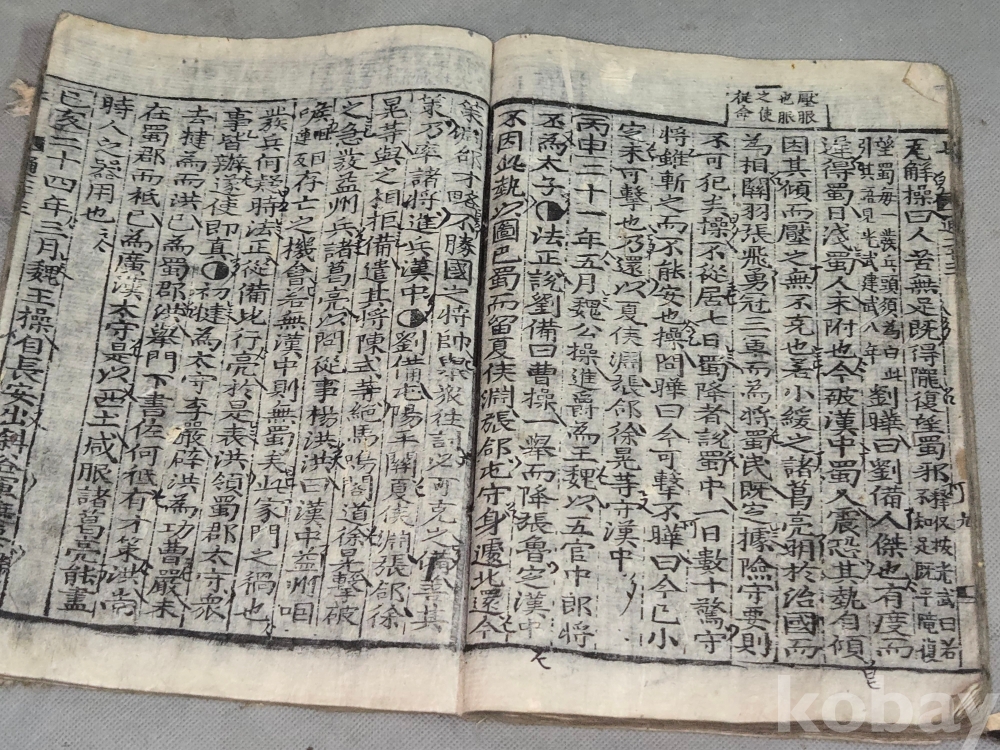 壓服
也服
之使
從命
足解操曰人苦無足既得隴復望蜀邪釋疑按光武曰若
不知足既平隴復
望蜀每一發兵頭須為白此
引其語見光武建武八年
劉曄曰劉備人傑也有度而
遲得蜀日淺蜀人未附也今破漢中蜀人震恐其勢自傾
因其傾而壓之無不克也若小緩之諸葛亮明於治國而
為相關羽張飛勇冠三軍而為將蜀民既定據險守要則
不可犯矣操不從居七日蜀降者說蜀中一日數十驚守
將雖斬之而不能安也操問曄曰今可擊不曄曰今已小
定未可擊也乃還以夏侯淵張郃徐晃等守漢中
丙申二十一年五月魏公操進爵為王魏以五官中郎將
丕為太子法正說劉備曰曹操一舉而降張魯定漢中
不因此勢以圖巴蜀而留夏侯淵張郃屯守身遽北還今
策淵郃才略不勝國之將帥舉衆往討必可克之備善其
策乃率諸將進兵漢中劉備屯陽平關夏侯淵張郃徐
晃等與之相拒備遣其將陳式等絕馬鳴閣道徐晃擊破
之急發益州兵諸葛亮以問從事楊洪洪曰漢中益州咽
喉存亡之機會若無漢中則無蜀矣此家門之禍也
發兵何疑時法正從備北行亮於是表洪領蜀郡太守衆
事皆辦遂使即真初犍為太守李嚴辟洪為功曹嚴未
去犍為而洪已為蜀郡洪舉門下書佐何祗有才策洪尚
在蜀郡而祗已為廣漢太守是以西土咸服諸葛亮能盡
時人之器用也
己亥二十四年三月魏王操自長安出斜谷
kobay